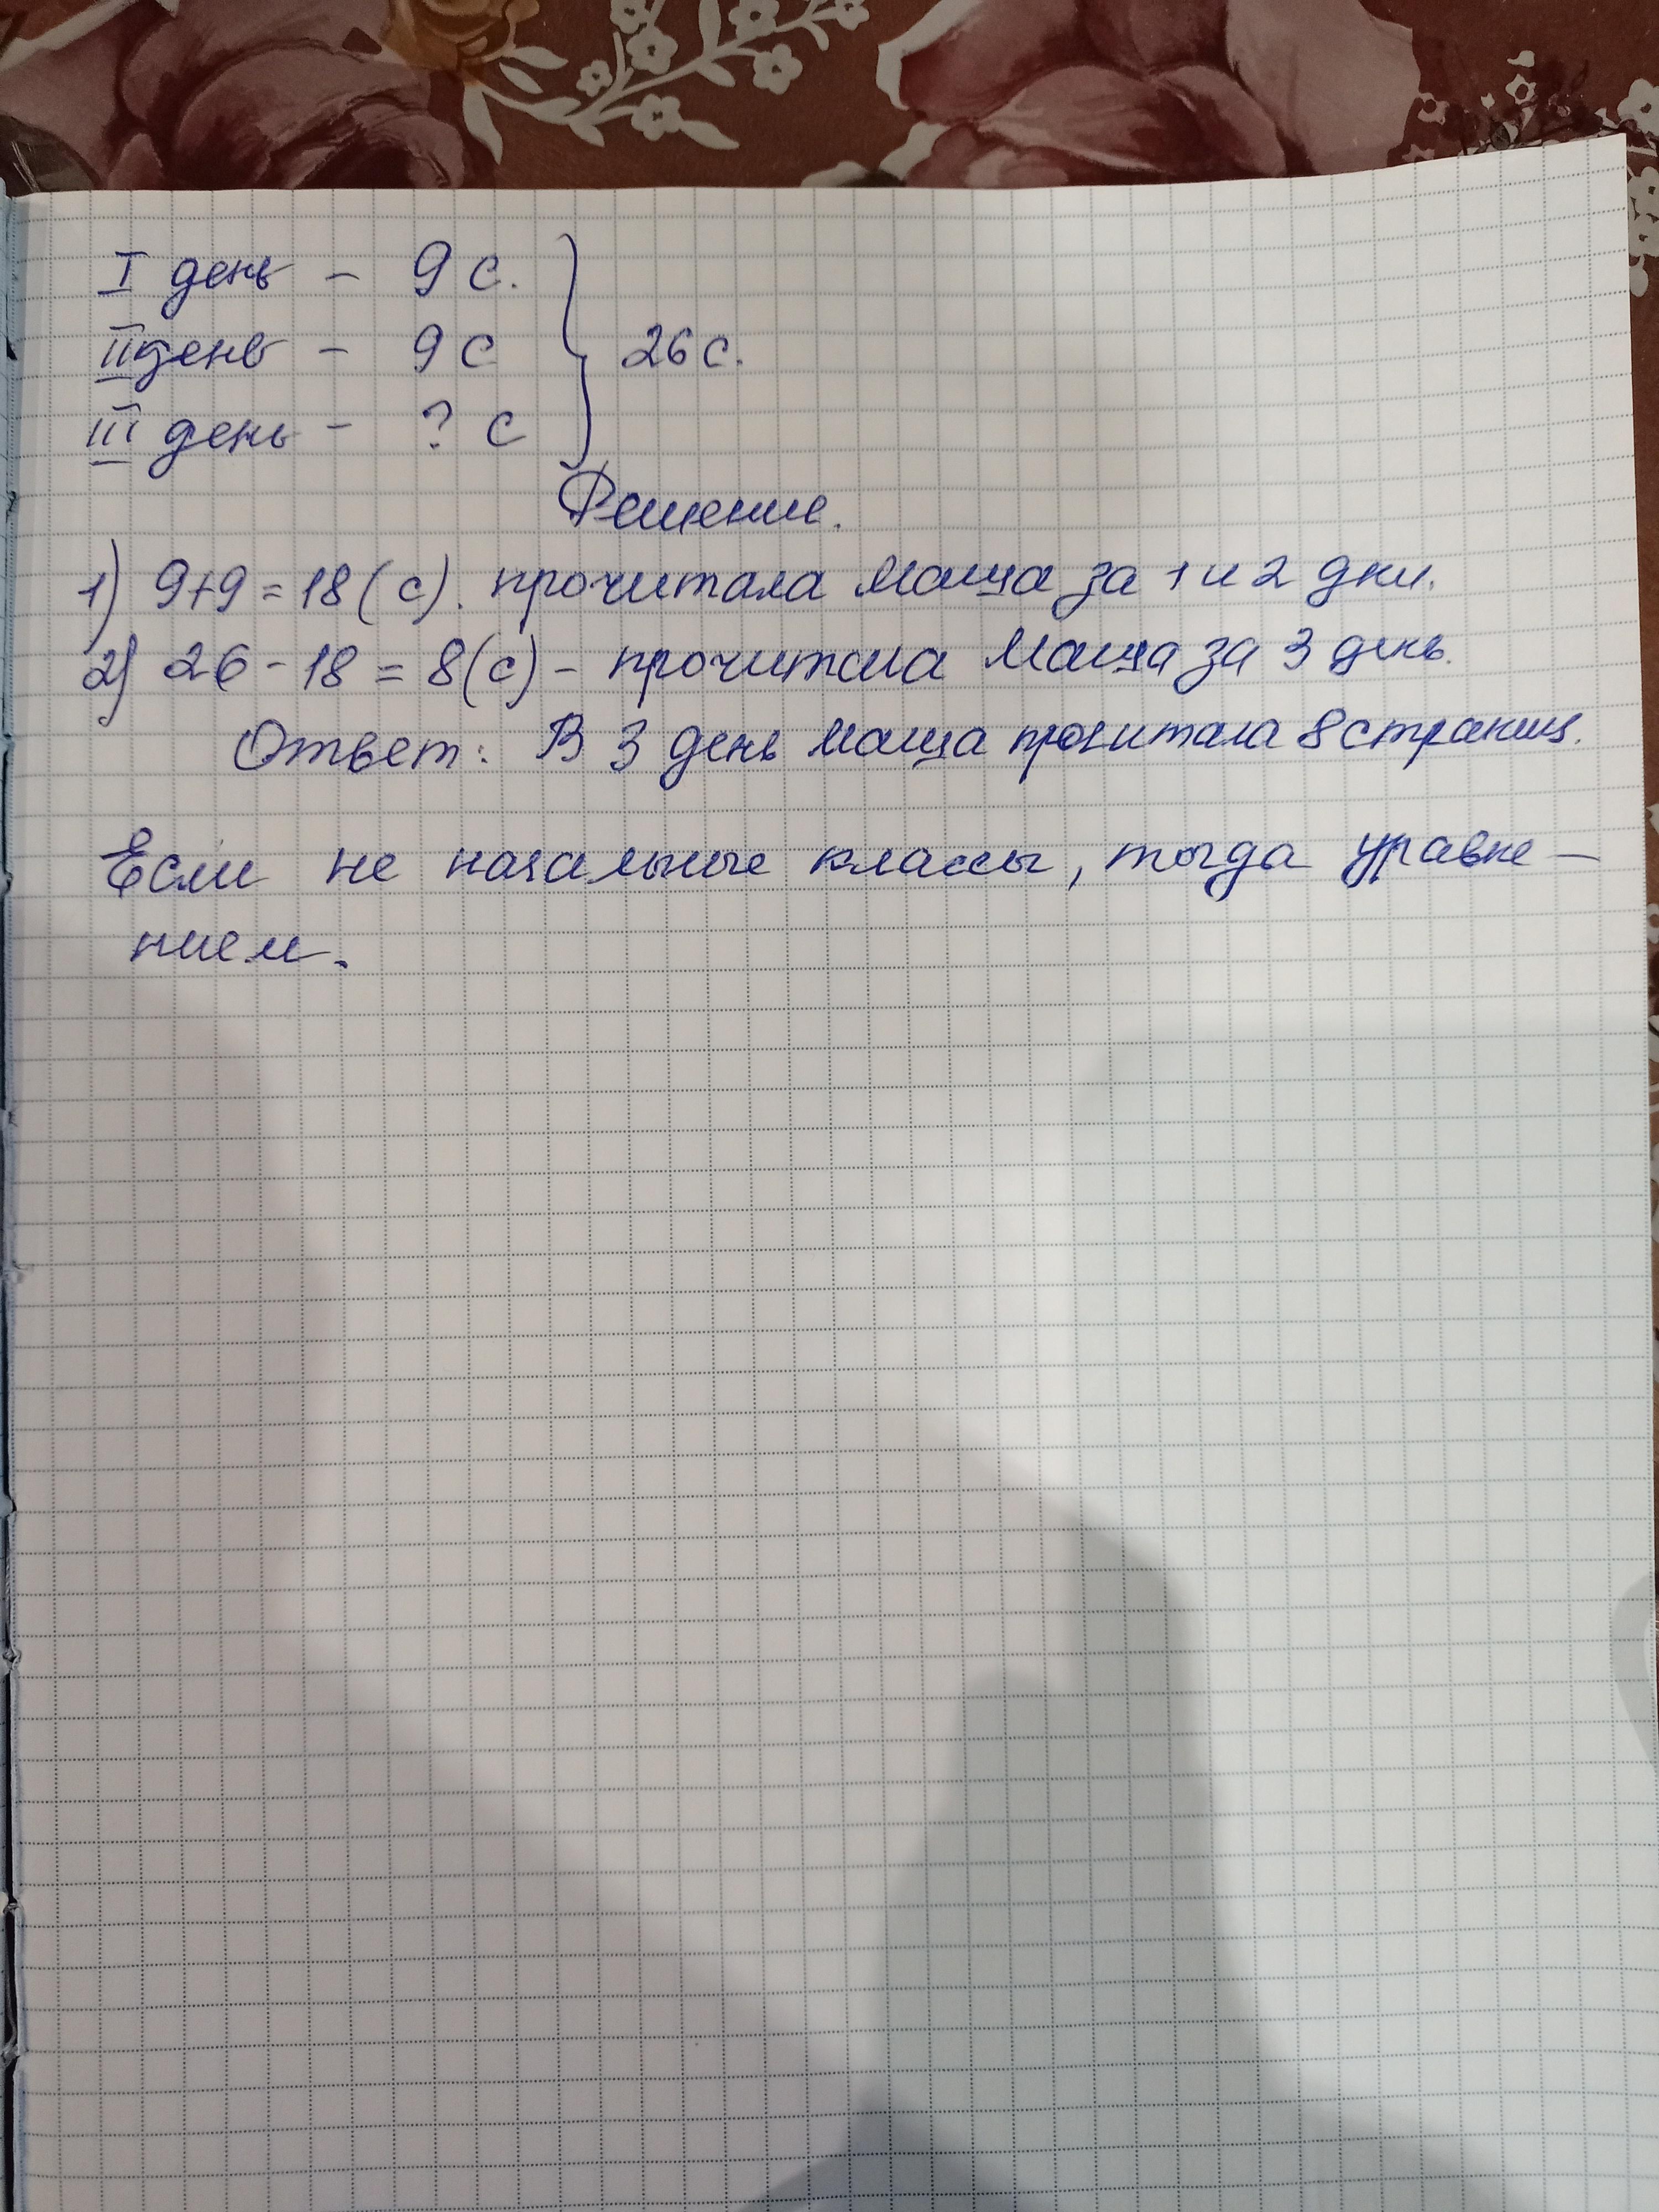 I день - 9 с.
II день - 9 с } 26 с.
III день - ? с
Решение.
1) 9+9=18(с). прочитала Маша за 1 и 2 дни.
2) 26-18=8(с)- прочитала Маша за 3 день.
Ответ: В 3 день Маша прочитала 8 страниц.
Если не начальные классы, тогда уравне-
нием.